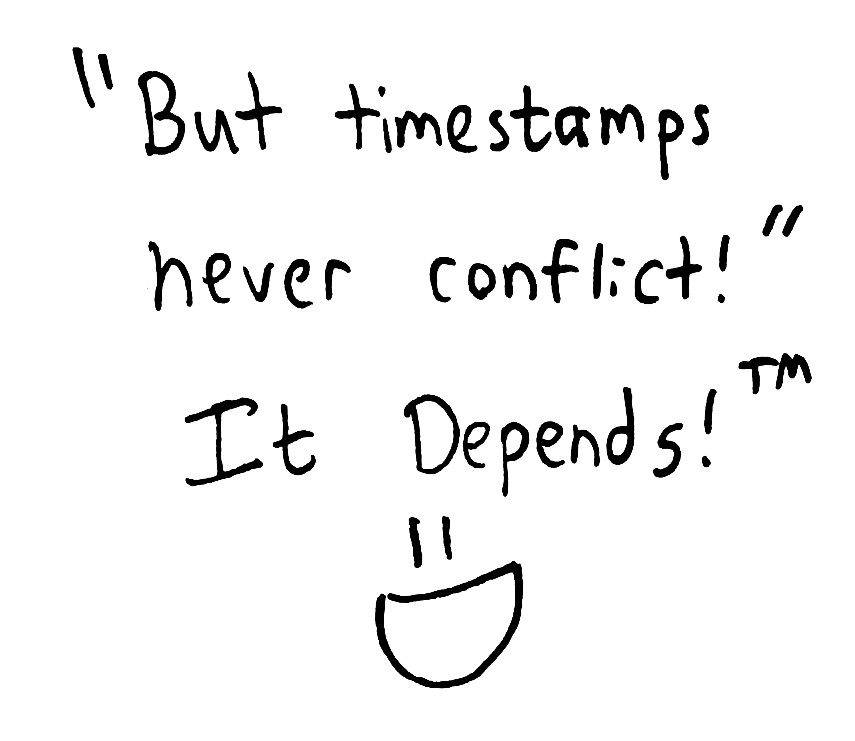 "But timestamps
never conflict!"
It Depends!™